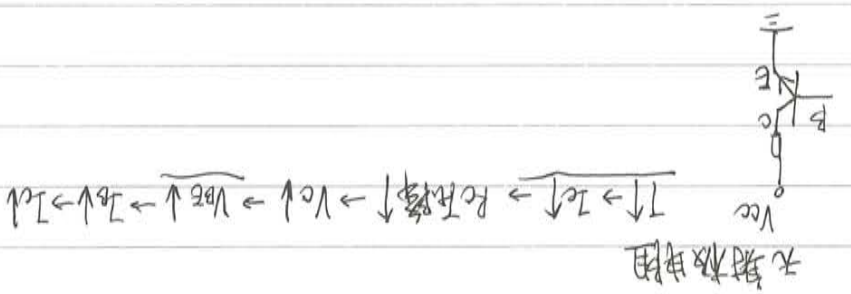 无射极电阻
Vcc
T↑→Ic↑→Rc压降↑→Vc↓→VBE↓→IB↓→Ic↓
C
B
E